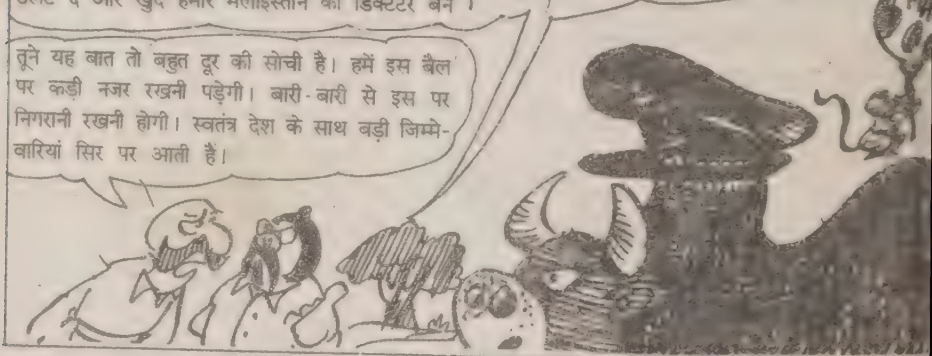 उलट दे और खुद हमारे मलाइस्तान का डिक्टेटर बने ।
तूने यह बात तो बहुत दूर की सोची है। हमें इस बैल
पर कड़ी नजर रखनी पड़ेगी। बारी-बारी से इस पर
निगरानी रखनी होगी। स्वतंत्र देश के साथ बड़ी जिम्मे-
वारियां सिर पर आती हैं।